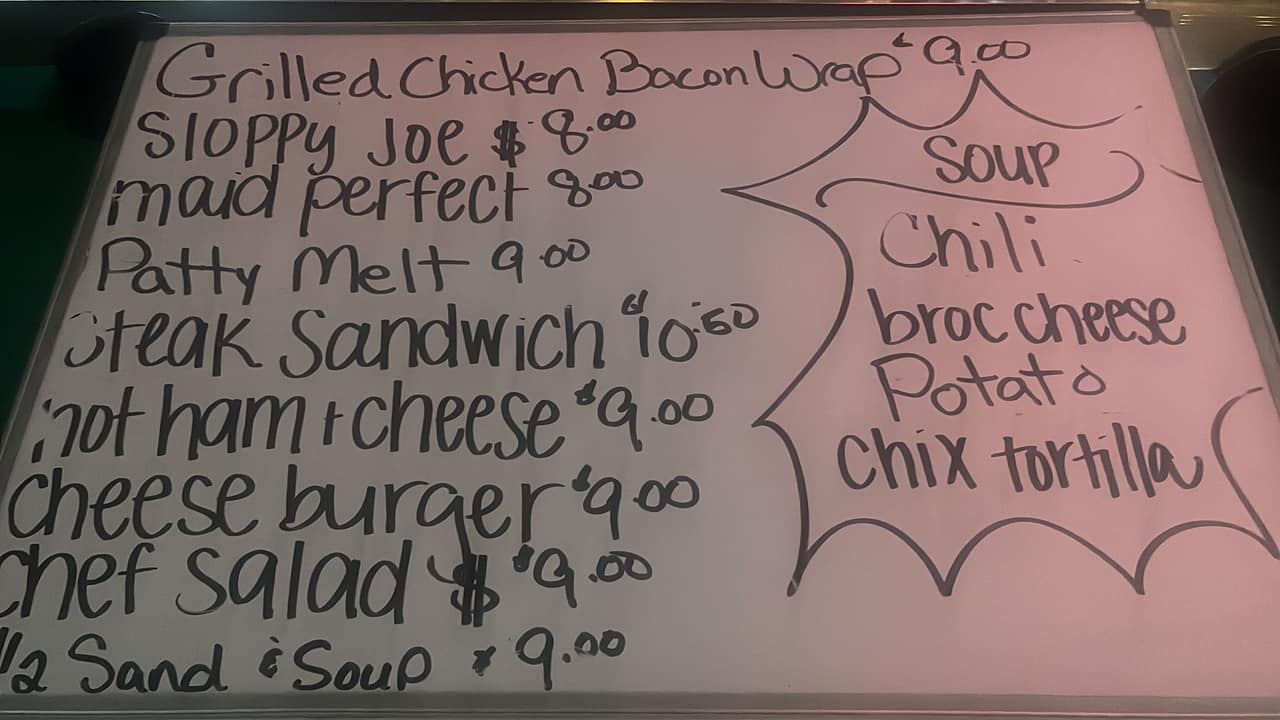 Grilled Chicken Bacon Wrap $9.00
Sloppy Joe $ 8.00
maid perfect 8.00
Patty Melt 9.00
Steak Sandwich $10.50
hot ham + cheese $9.00
cheese burger $9.00
chef salad $ $9.00
1/2 Sand & Soup $9.00
Soup
Chili
broc cheese
Potato
chix tortilla